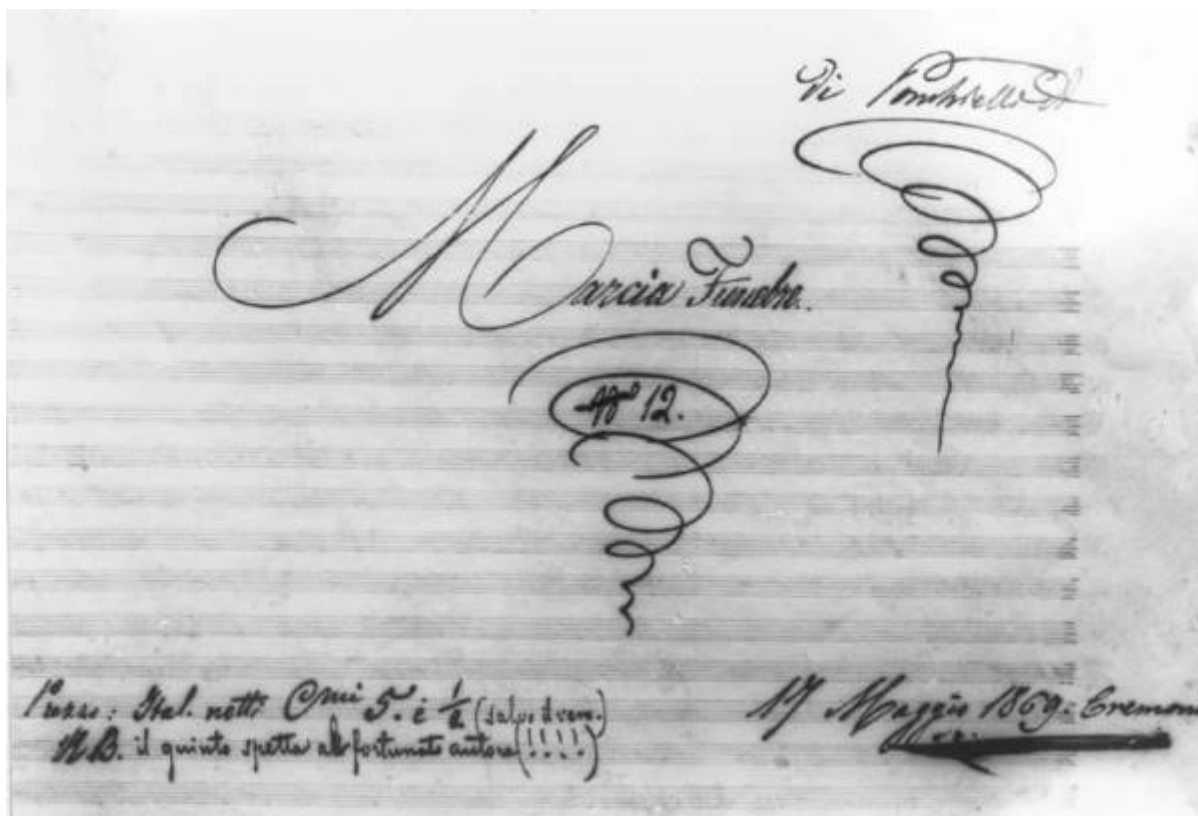 di Ponchielli A
Marcia Funebre.
N° 12.
Prezzo: Ital. netti Cmi 5. e ½ (salvo il vero.)
N.B. il quinto spetta al fortunato autore (!!!!)
17 Maggio 1869. Cremona